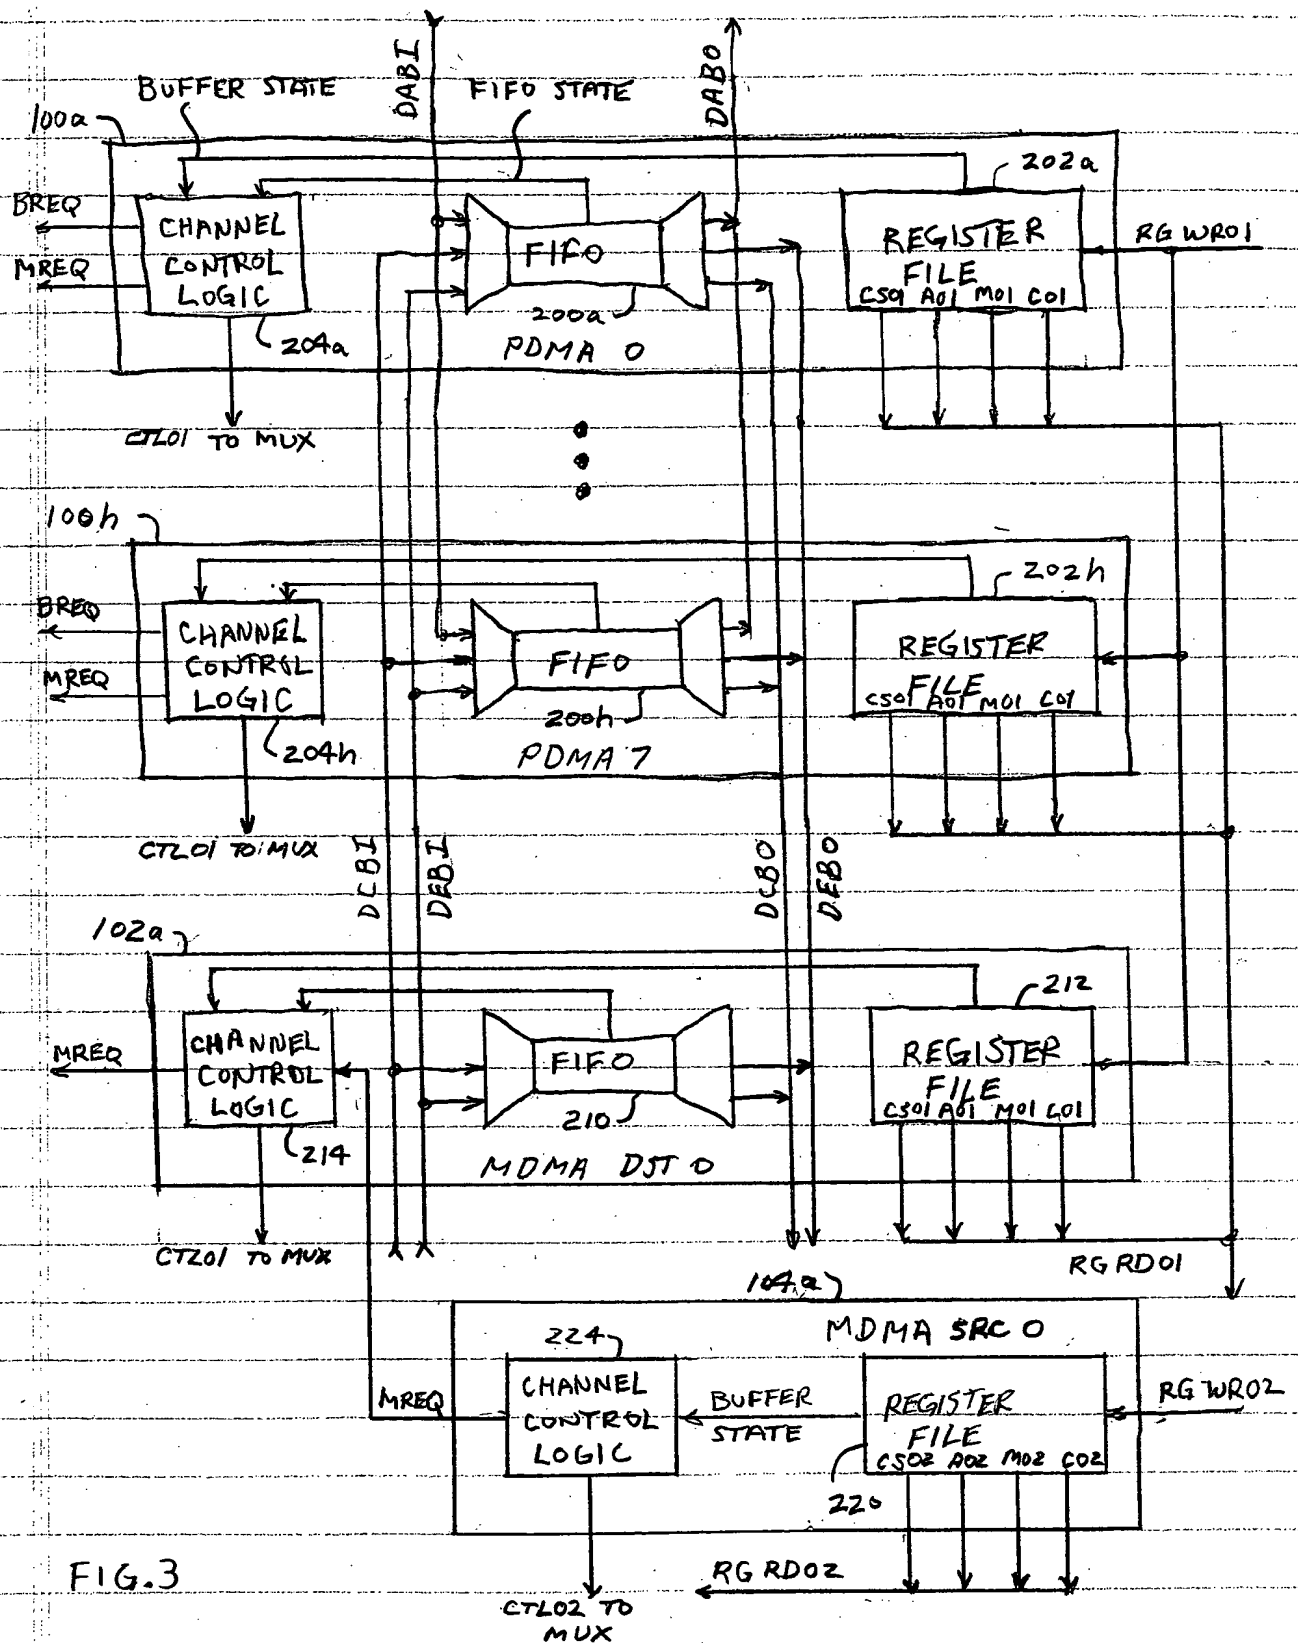 DABI
DABO
BUFFER STATE
FIFO STATE
100a
202a
BREQ
MREQ
CHANNEL
CONTROL
LOGIC
FIFO
REGISTER
FILE
CS01 A01 M01 C01
RG WR01
200a
204a
PDMA 0
CTL01 TO MUX
100h
202h
BREQ
MREQ
CHANNEL
CONTROL
LOGIC
FIFO
REGISTER
FILE
CS01 A01 M01 C01
200h
204h
PDMA 7
CTL01 TO MUX
DCBI
DEBI
DCBO
DEBO
102a
212
MREQ
CHANNEL
CONTROL
LOGIC
FIFO
REGISTER
FILE
CS01 A01 M01 C01
210
214
MDMA DST 0
CTL01 TO MUX
RG RD01
104a
MDMA SRC 0
224
MREQ
CHANNEL
CONTROL
LOGIC
BUFFER
STATE
REGISTER
FILE
CS02 A02 M02 C02
RG WR02
220
RG RD02
CTL02 TO
MUX
FIG.3